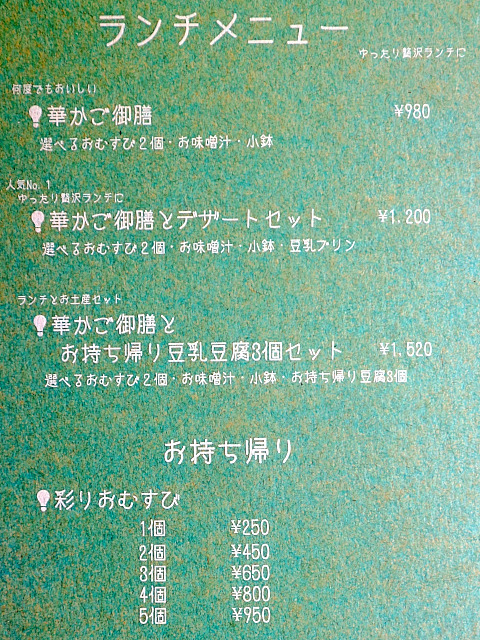 ランチメニュー
ゆったり贅沢ランチに
何度でもおいしい
華かご御膳 ¥980
選べるおむすび2個・お味噌汁・小鉢
人気No.1
ゆったり贅沢ランチに
華かご御膳とデザートセット ¥1,200
選べるおむすび2個・お味噌汁・小鉢・豆乳プリン
ランチとお土産セット
華かご御膳と
お持ち帰り豆乳豆腐3個セット ¥1,520
選べるおむすび2個・お味噌汁・小鉢・お持ち帰り豆腐3個
お持ち帰り
彩りおむすび
1個 ¥250
2個 ¥450
3個 ¥650
4個 ¥800
5個 ¥950